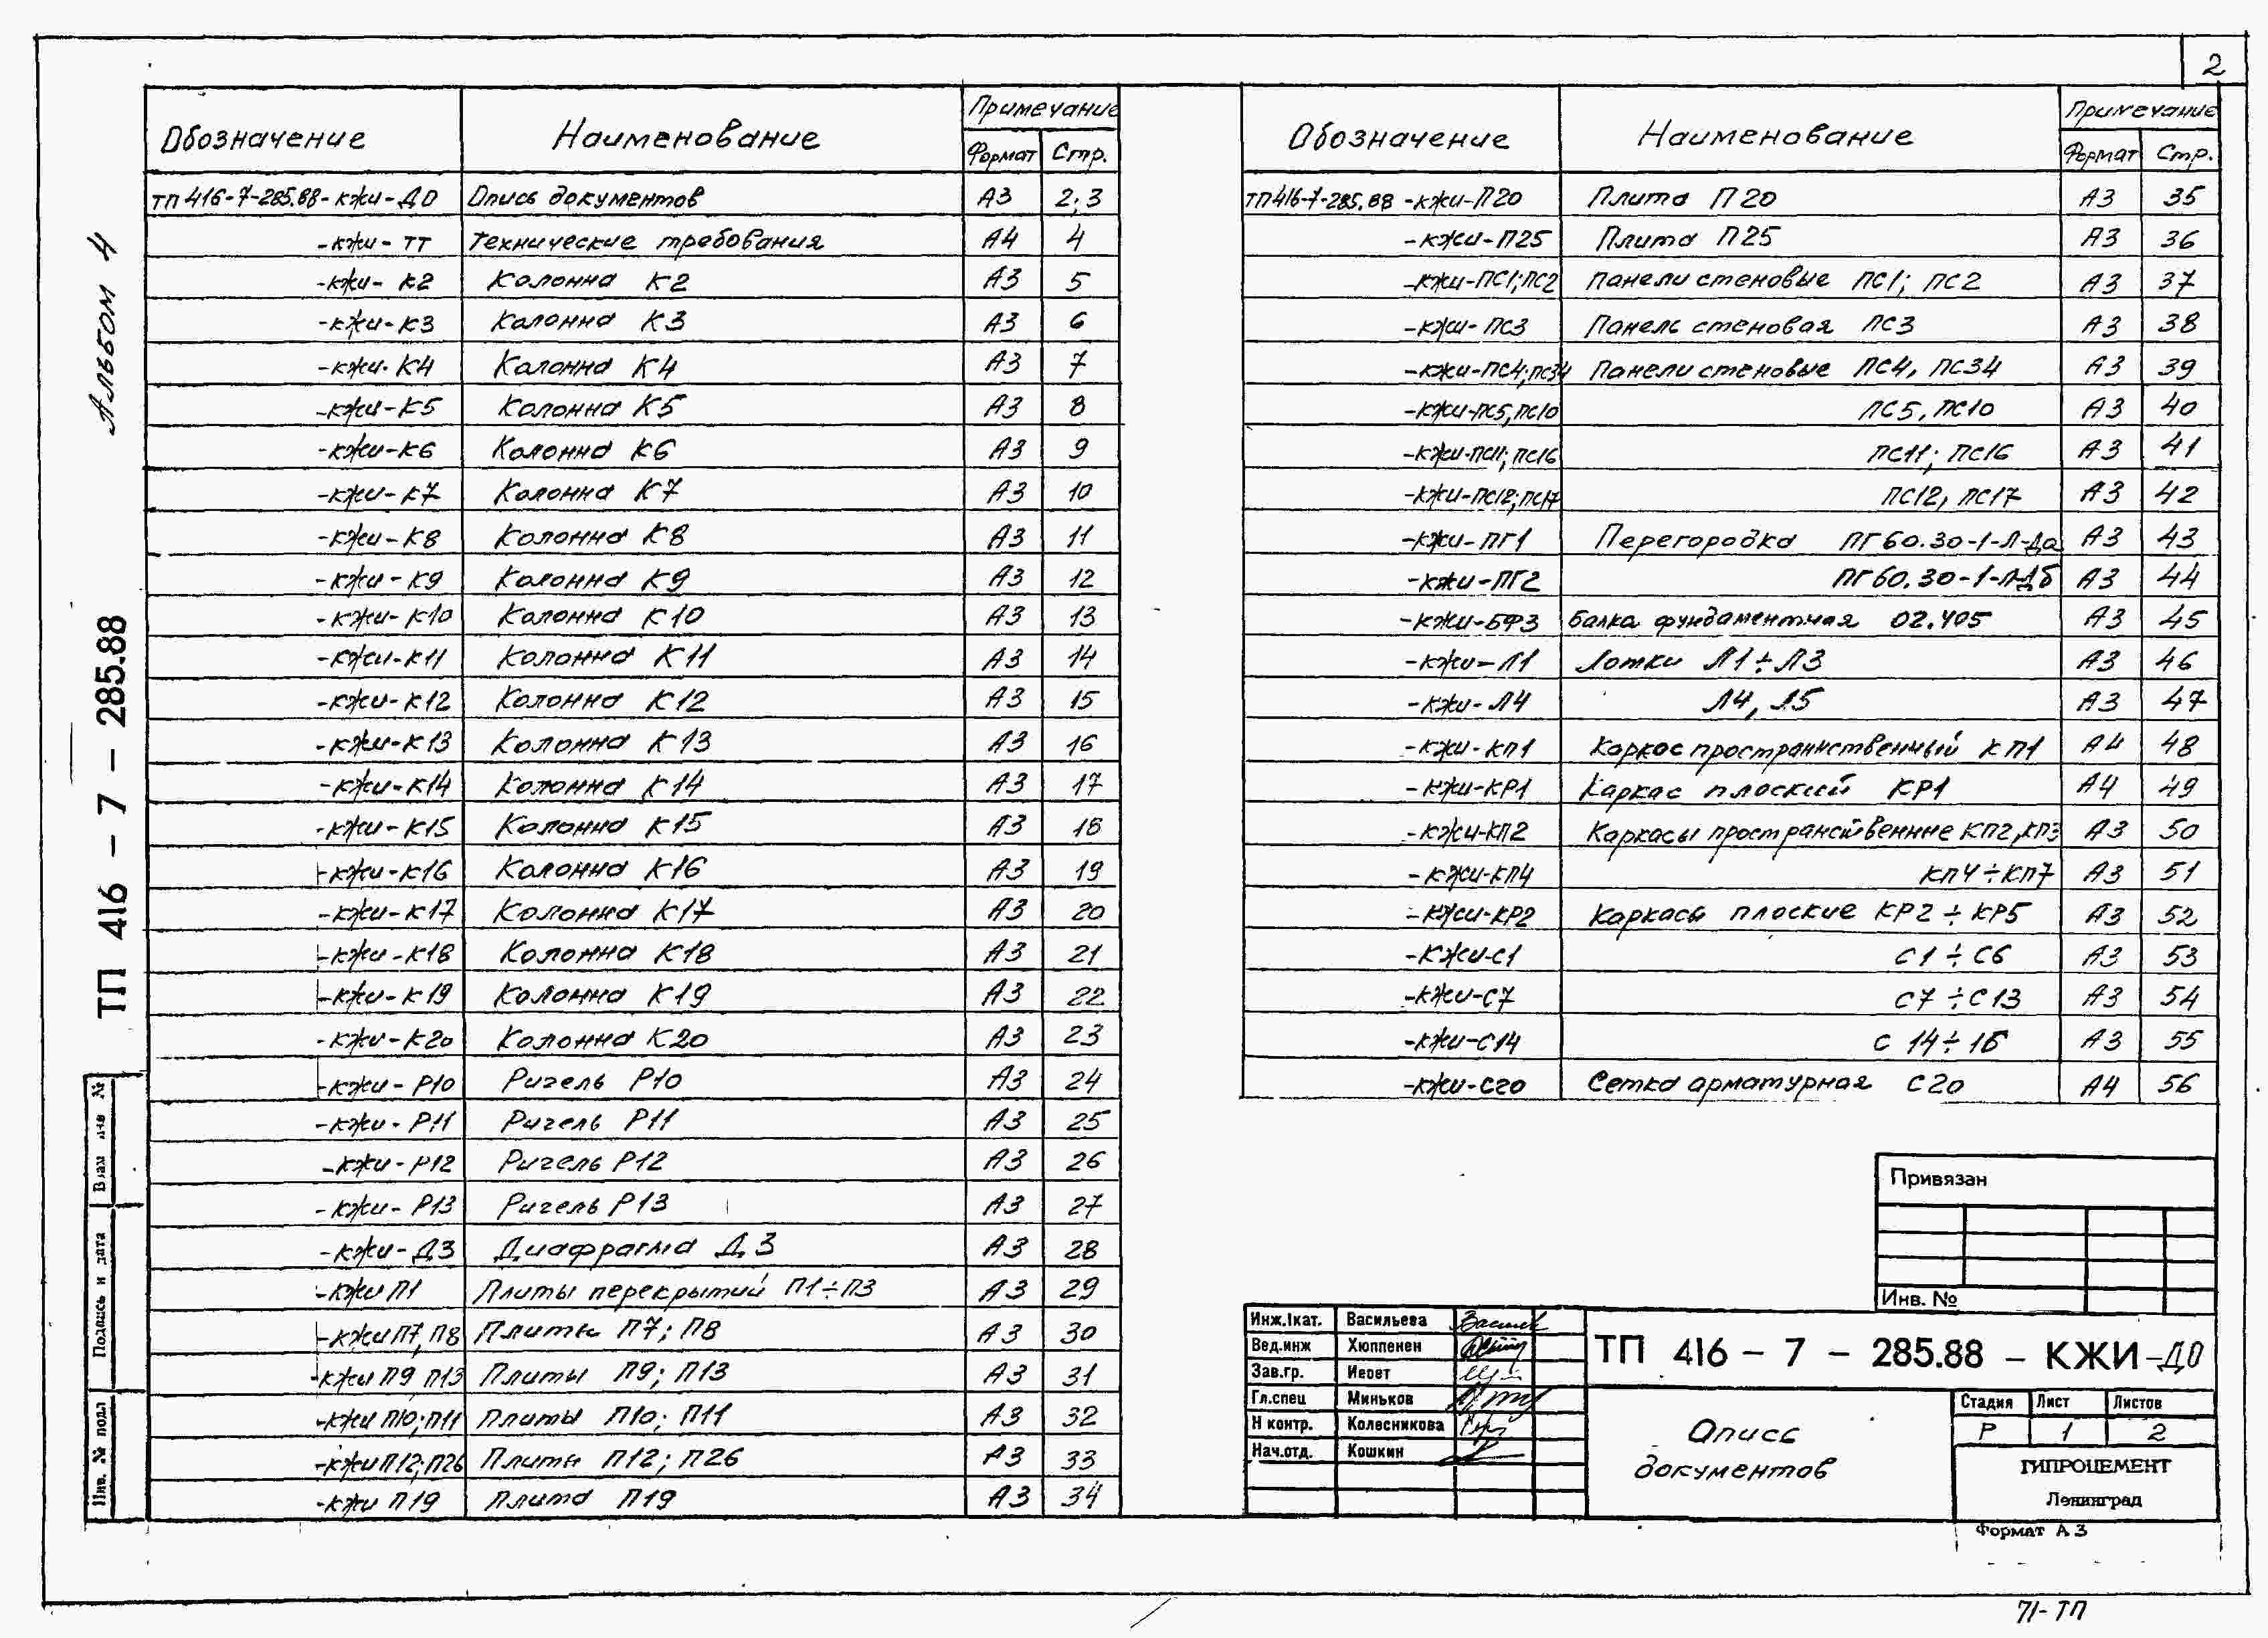 2
Альбом 4
ТП 416 - 7 - 285.88
Взам инв №
Подпись и дата
Инв. № подл
Обозначение Наименование Примечание
Формат Стр.
ТП 416-7-285.88-КЖИ-ДО Опись документов А3 2;3
-КЖИ-ТТ Технические требования А4 4
-КЖИ-К2 Колонна К2 А3 5
-КЖИ-К3 Колонна К3 А3 6
-КЖИ-К4 Колонна К4 А3 7
-КЖИ-К5 Колонна К5 А3 8
-КЖИ-К6 Колонна К6 А3 9
-КЖИ-К7 Колонна К7 А3 10
-КЖИ-К8 Колонна К8 А3 11
-КЖИ-К9 Колонна К9 А3 12
-КЖИ-К10 Колонна К10 А3 13
-КЖИ-К11 Колонна К11 А3 14
-КЖИ-К12 Колонна К12 А3 15
-КЖИ-К13 Колонна К13 А3 16
-КЖИ-К14 Колонна К14 А3 17
-КЖИ-К15 Колонна К15 А3 18
-КЖИ-К16 Колонна К16 А3 19
-КЖИ-К17 Колонна К17 А3 20
-КЖИ-К18 Колонна К18 А3 21
-КЖИ-К19 Колонна К19 А3 22
-КЖИ-К20 Колонна К20 А3 23
-КЖИ-Р10 Ригель Р10 А3 24
-КЖИ-Р11 Ригель Р11 А3 25
-КЖИ-Р12 Ригель Р12 А3 26
-КЖИ-Р13 Ригель Р13 А3 27
-КЖИ-Д3 Диафрагма Д3 А3 28
-КЖИ П1 Плиты перекрытий П1÷П3 А3 29
-КЖИ П7, П8 Плиты П7; П8 А3 30
-КЖИ П9 П13 Плиты П9; П13 А3 31
-КЖИ П10; П11 Плиты П10; П11 А3 32
-КЖИ П12; П26 Плиты П12; П26 А3 33
-КЖИ П19 Плита П19 А3 34
Обозначение Наименование Примечание
Формат Стр.
ТП 416-7-285.88-КЖИ-П20 Плита П20 А3 35
-КЖИ-П25 Плита П25 А3 36
-КЖИ-ПС1; ПС2 Панели стеновые ПС1; ПС2 А3 37
-КЖИ-ПС3 Панель стеновая ПС3 А3 38
-КЖИ-ПС4; ПС34 Панели стеновые ПС4, ПС34 А3 39
-КЖИ-ПС5, ПС10 ПС5, ПС10 А3 40
-КЖИ-ПС11; ПС16 ПС11; ПС16 А3 41
-КЖИ-ПС12; ПС17 ПС12, ПС17 А3 42
-КЖИ-ПГ1 Перегородка ПГ60.30-1-Л-Да А3 43
-КЖИ-ПГ2 ПГ60.30-1-Л-Дб А3 44
-КЖИ-БФ3 Балка фундаментная 02.405 А3 45
-КЖИ-Л1 Лотки Л1÷Л3 А3 46
-КЖИ-Л4 Л4, Л5 А3 47
-КЖИ-КП1 Каркас пространственный КП1 А4 48
-КЖИ-КР1 Каркас плоский КР1 А4 49
-КЖИ-КП2 Каркасы пространственные КП2, КП3 А3 50
-КЖИ-КП4 КП4÷КП7 А3 51
-КЖИ-КР2 Каркасы плоские КР2÷КР5 А3 52
-КЖИ-С1 С1÷С6 А3 53
-КЖИ-С7 С7÷С13 А3 54
-КЖИ-С14 С 14÷16 А3 55
-КЖИ-С20 Сетка арматурная С20 А4 56
Привязан
Инв. №
Инж.1кат. Васильева
Вед.инж Хюппенен
Зав.гр. Иеоет
Гл.спец Миньков
Н контр. Колесникова
Нач.отд. Кошкин
ТП 416 - 7 - 285.88 - КЖИ-ДО
Опись
документов
Стадия Лист Листов
Р 1 2
ГИПРОЦЕМЕНТ
Ленинград
Формат А3
71-ТП